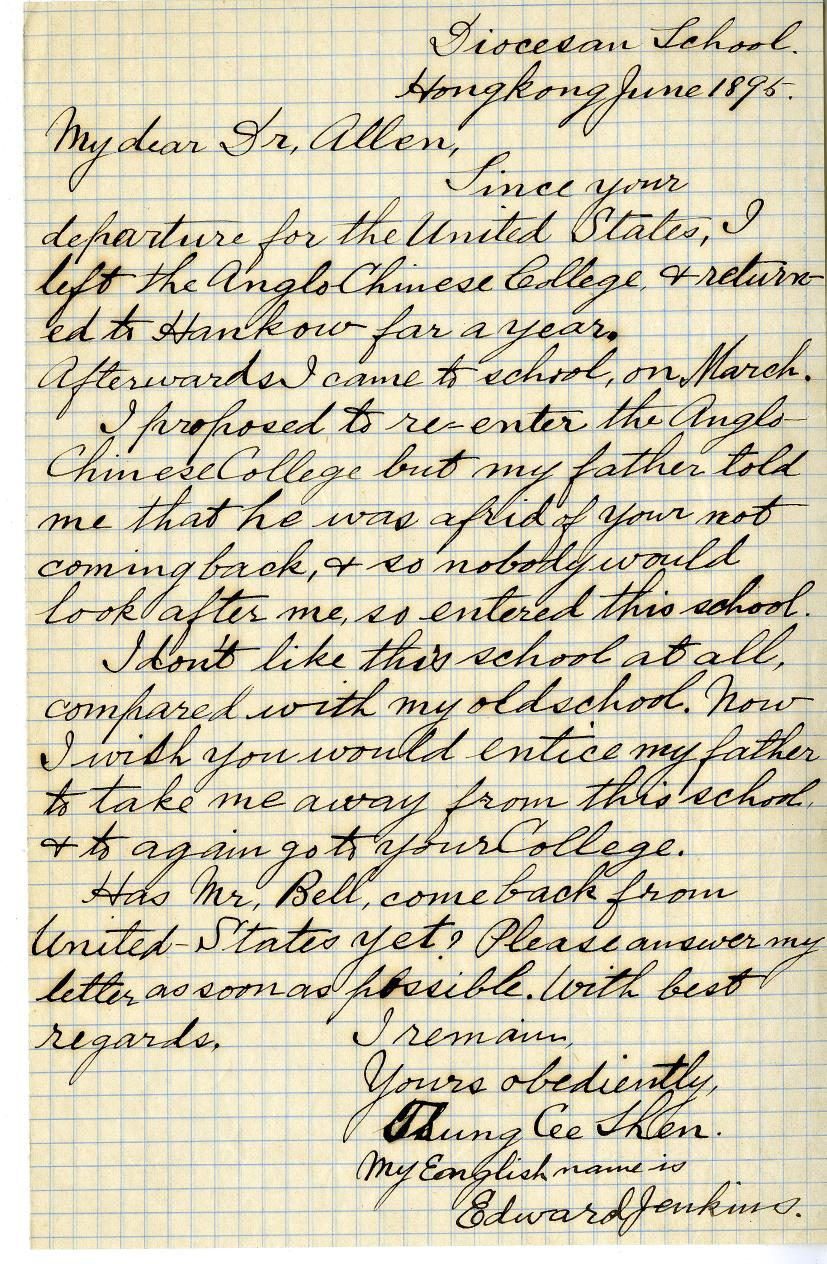 Diocesan School.
Hongkong June 1895.
My dear Dr, Allen,
Since your
departure for the United States, I
left the Anglo Chinese College, & return-
ed to Hankow for a year.
Afterwards I came to school, on March.
I proposed to re-enter the Anglo-
Chinese College but my father told
me that he was afrid of your not
coming back, & so nobody would
look after me, so entered this school.
I don't like this school at all,
compared with my old school. Now
I wish you would entice my father
to take me away from this school,
& to again go to your College.
Has Mr, Bell, come back from
United-States yet? Please answer my
letter as soon as possible. With best
regards.
I remain,
Yours obediently,
Tsung Cee Shen.
My English name is
Edward Jenkins.